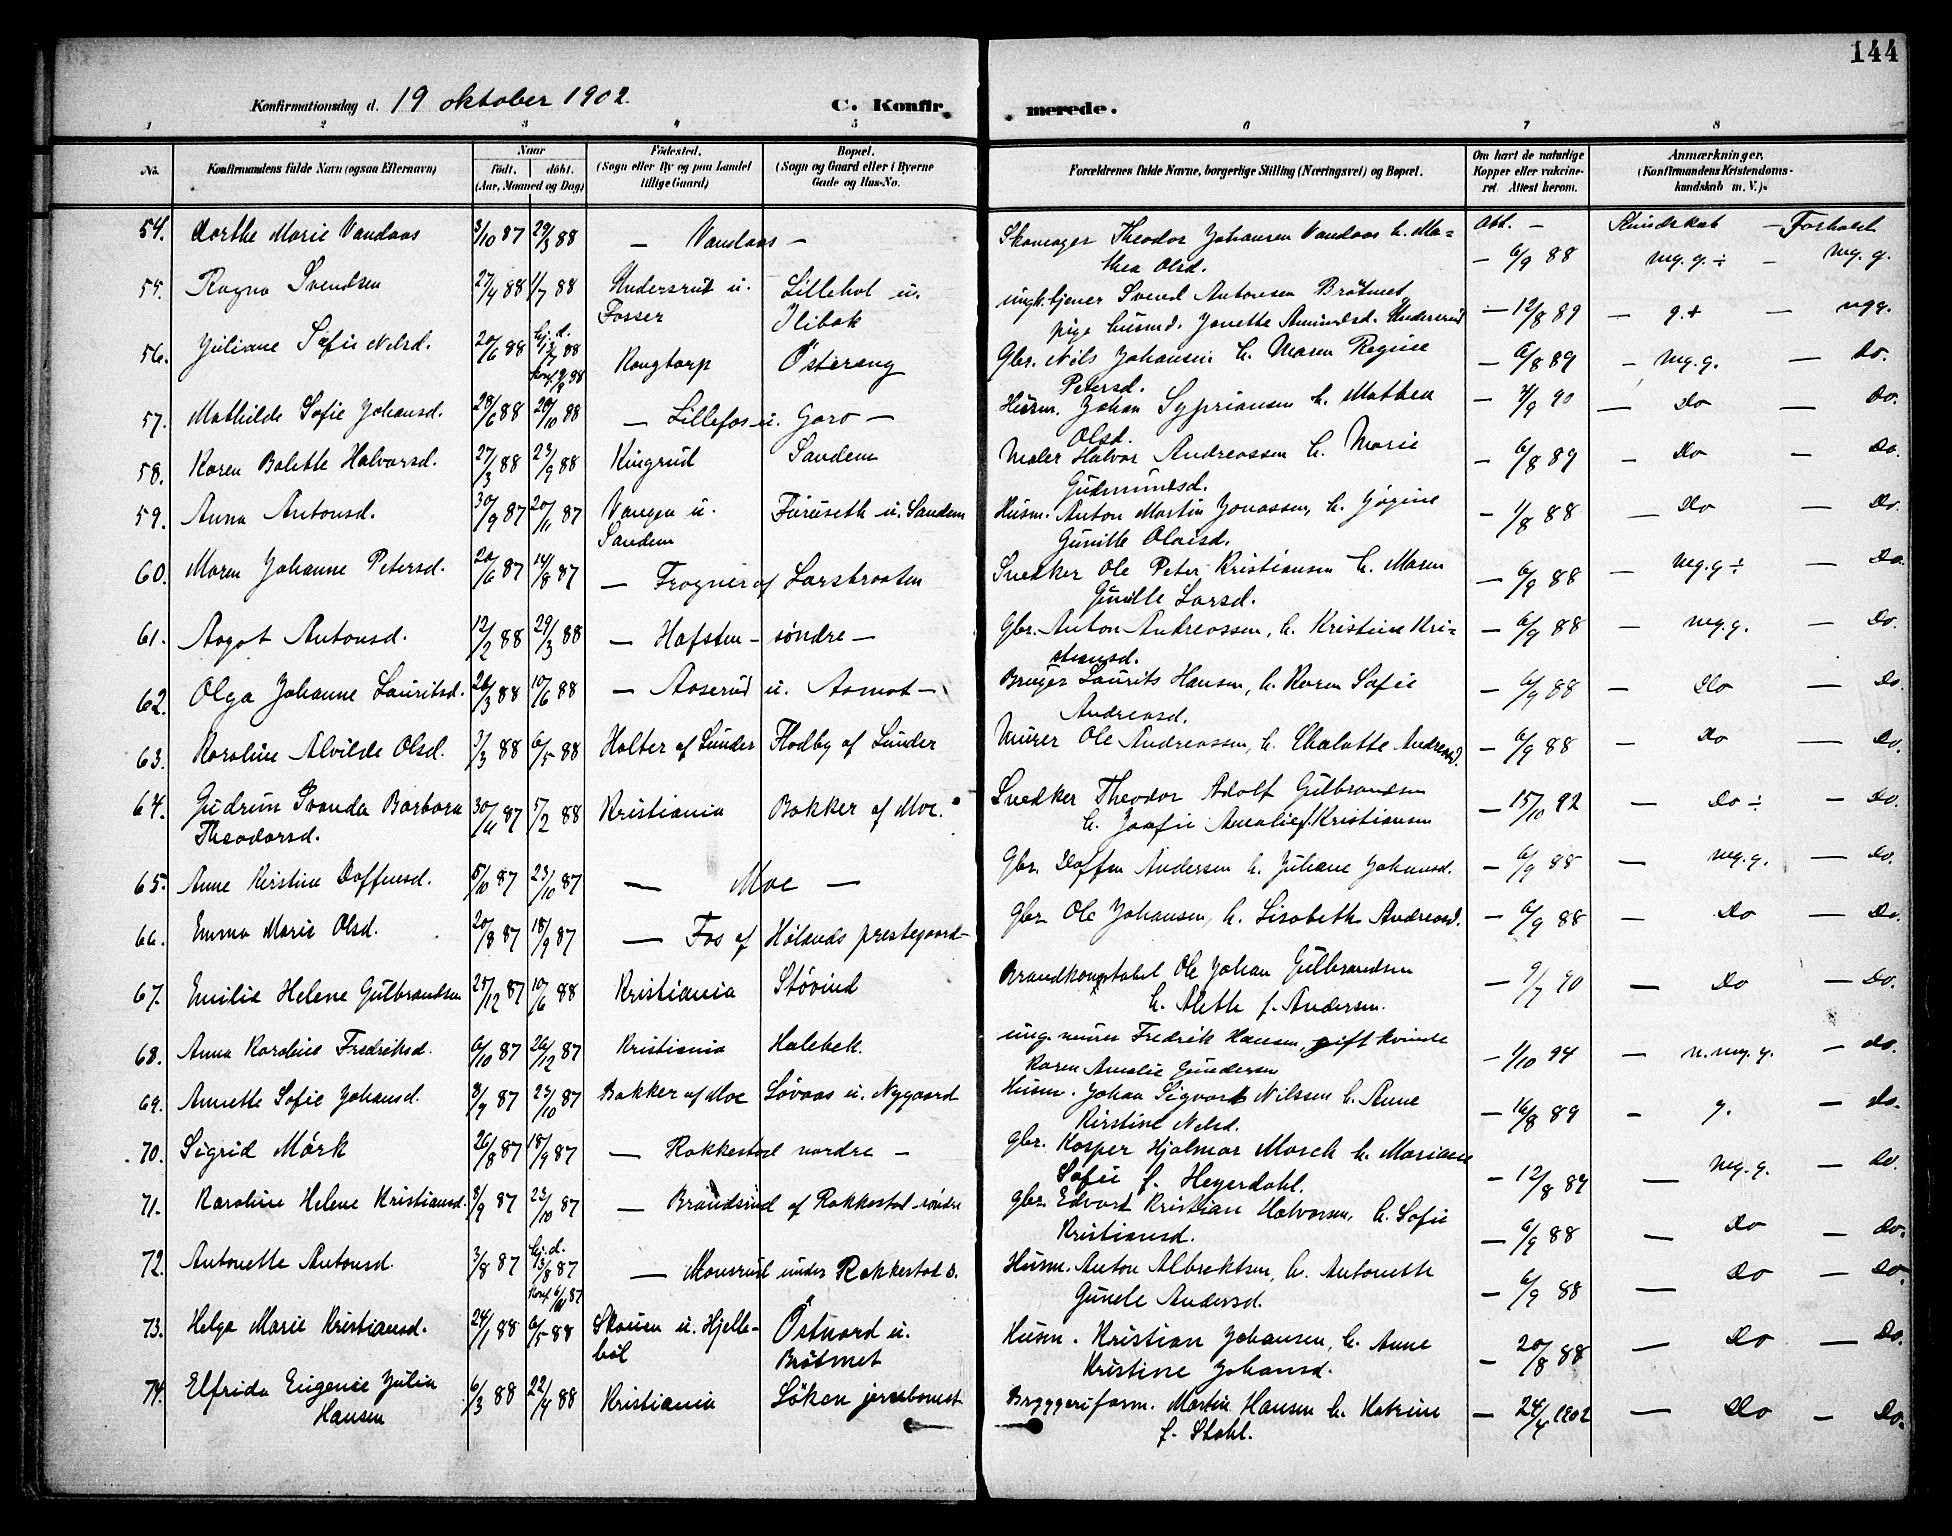 144
Konfirmationsdag d. 19 oktober 1902. C. Konfir merede.
1 2 3 4 5 6 7 8
No. Konfirmandens fulde Navn (ogsaa Efternavn) Naar født. døbt. (Aar, Maaned og Dag) Fødested. (Sogn eller By og paa Landet tillige Gaard) Bopæl. (Sogn og Gaard eller i Byerne Gade og Hus-No. Forældrenes fulde Navne, borgerlige Stilling (Næringsvei) og Bopæl. Om havt de naturlige Kopper eller vaccineret. Attest herom. Anmærkninger, (Konfirmandens Kristendomskundskab m. V.).
Att. — Kundskab — Forhold
54. Dorthe Marie Vandaas 3/10 87 29/3 88 — Vandaas — Skomager Theodor Johansen Vandaas h. Ma=
thea Olsd. — 6/9 88 mg. g. ÷ — mg. g.
55. Ragna Svendsen 27/4 88 1/7 88 Undersrud u. Fosser Lillehol u. Ilibak ungk. tjener Svend Antonsen Bråtmet,
pige husmd. Jonette Amundsd. Undersrud — 12/8 89 — g. + — mg g.
56. Juliane Sofie Nilsd. 20/6 88 hj. d. 1/7 88 Kongtorp Østereng Gbr. Nils Johansen h. Maren Regine
Petersd. — 6/8 89 — mg. g. — Do.
57. Mathilde Sofie Johansd. 28/6 88 20/10 88 — Lillefos u. Garo — Husm. Johan Syprianson h. Mathea
Olsd. — 4/9 90 — Do — Do.
58. Karen Bolette Halvorsd. 27/3 88 23/9 88 Kingrud Sandem Maler Halvor Andreassen h. Marie
Gudmundsd. — 6/8 89 — Do — Do.
59. Anna Antonsd. 30/9 87 20/11 87 Vangen u. Sandem Furuseth u. Sandem Husm. Anton Martin Jonassen, h. Jøgine
Gunille Olaisd. — 1/8 88 — Do — Do.
60. Maren Johanne Petersd. 20/6 87 14/8 87 — Frogner af Larsbraaten Snedker Ole Peter Kristiansen h. Maren
Gunille Larsd. — 6/9 88 — mg. g ÷ — Do.
61. Aagot Antonsd. 12/2 88 29/3 88 — Hafsten — søndre — Gbr. Anton Andreassen, h. Kristine Kri=
stiansd. — 6/9 88 — mg. g. — Do.
62. Olga Johanne Lauritsd. 26/3 88 10/6 88 — Aaserud u. Aamot — Bruger Laurits Hansen, h. Karen Sofie
Andreasd. — 6/9 88 — Do — Do.
63. Karoline Alvilde Olsd. 3/3 88 6/5 88 Holter af Sunder Flodby af Sunder Murer Ole Andreassen, h. Chalotte Andreasd. — 6/9 88 — Do — Do.
64. Gudrun Svanda Barbara Theodorsd. 30/11 87 5/2 88 Kristiania Bakker af Moe. Snedker Theodor Adolf Gulbrandsen
h. Josefie Amalie f. Kristiansen — 15/10 92 — Do ÷ — Do.
65. Anne Kirstine Doffensd. 5/10 87 23/10 87 — Moe — Gbr. Doffen Andersen h. Juliane Johansd. — 6/9 88 — mg. g. — Do.
66. Emma Marie Olsd. 20/8 87 18/9 87 — Fos af Hølands prestegaard — Gbr. Ole Johansen, h. Lisabeth Andreasd. — 6/9 88 — Do — Do.
67. Emilie Helene Gulbrandsen 25/12 87 10/6 88 Kristiania Støvind Brandkonstabel Ole Johan Gulbrandsen
h. Aleth f. Andersen. — 9/7 90 — Do — Do.
68. Anna Karoline Fredriksd. 6/10 87 26/12 87 Kristiania Halebek. ung. murer Fredrik Hansen, gift kvinde
Karen Amalie Gundersen — 1/10 94 — m. mg. g. — do.
69. Annette Sofie Johansd. 3/9 87 23/10 87 Bakker af Moe Løvaas u. Nygaard Husm. Johan Sigvart Nilssen h. Anne
Kirstine Nilsd. — 16/8 89 — g. — do.
70. Sigrid Mörk 26/8 87 18/9 87 — Rakkestad nordre — gbr. Kasper Hjalmar Morch h. Mariane
Sofie f. Heyerdahl. — 12/8 89 — mg. g. — do.
71. Karoline Helene Kristiansd. 3/9 87 23/10 87 — Brandsrud af Rakkestad søndre gbr. Edvart Kristian Halvorsen, h. Sofie
Kristiansd. — 6/9 88 — Do — Do.
72. Antonette Antonsd. 3/8 87 hj. d. 13/8 87 — Monsrud under Rakkestad s. Husm. Anton Albrektsen, h. Antonette
Gunele Andersd. — 6/9 88 — Do — Do.
73. Helga Marie Kristiansd. 24/1 88 6/5 88 Skouen u. Hjellebøl Østnord u. Bråtmet Husm. Kristian Johansen, h. Anne
Kristine Johansd. — 20/8 88 — Do — Do.
74. Elfrida Eugenie Julia Hansen 6/3 88 22/4 88 Kristiania Løken Bryggeriform. Martin Hansen h. Katrine
f. Stahl. — 24/4 1902 — Do — Do.